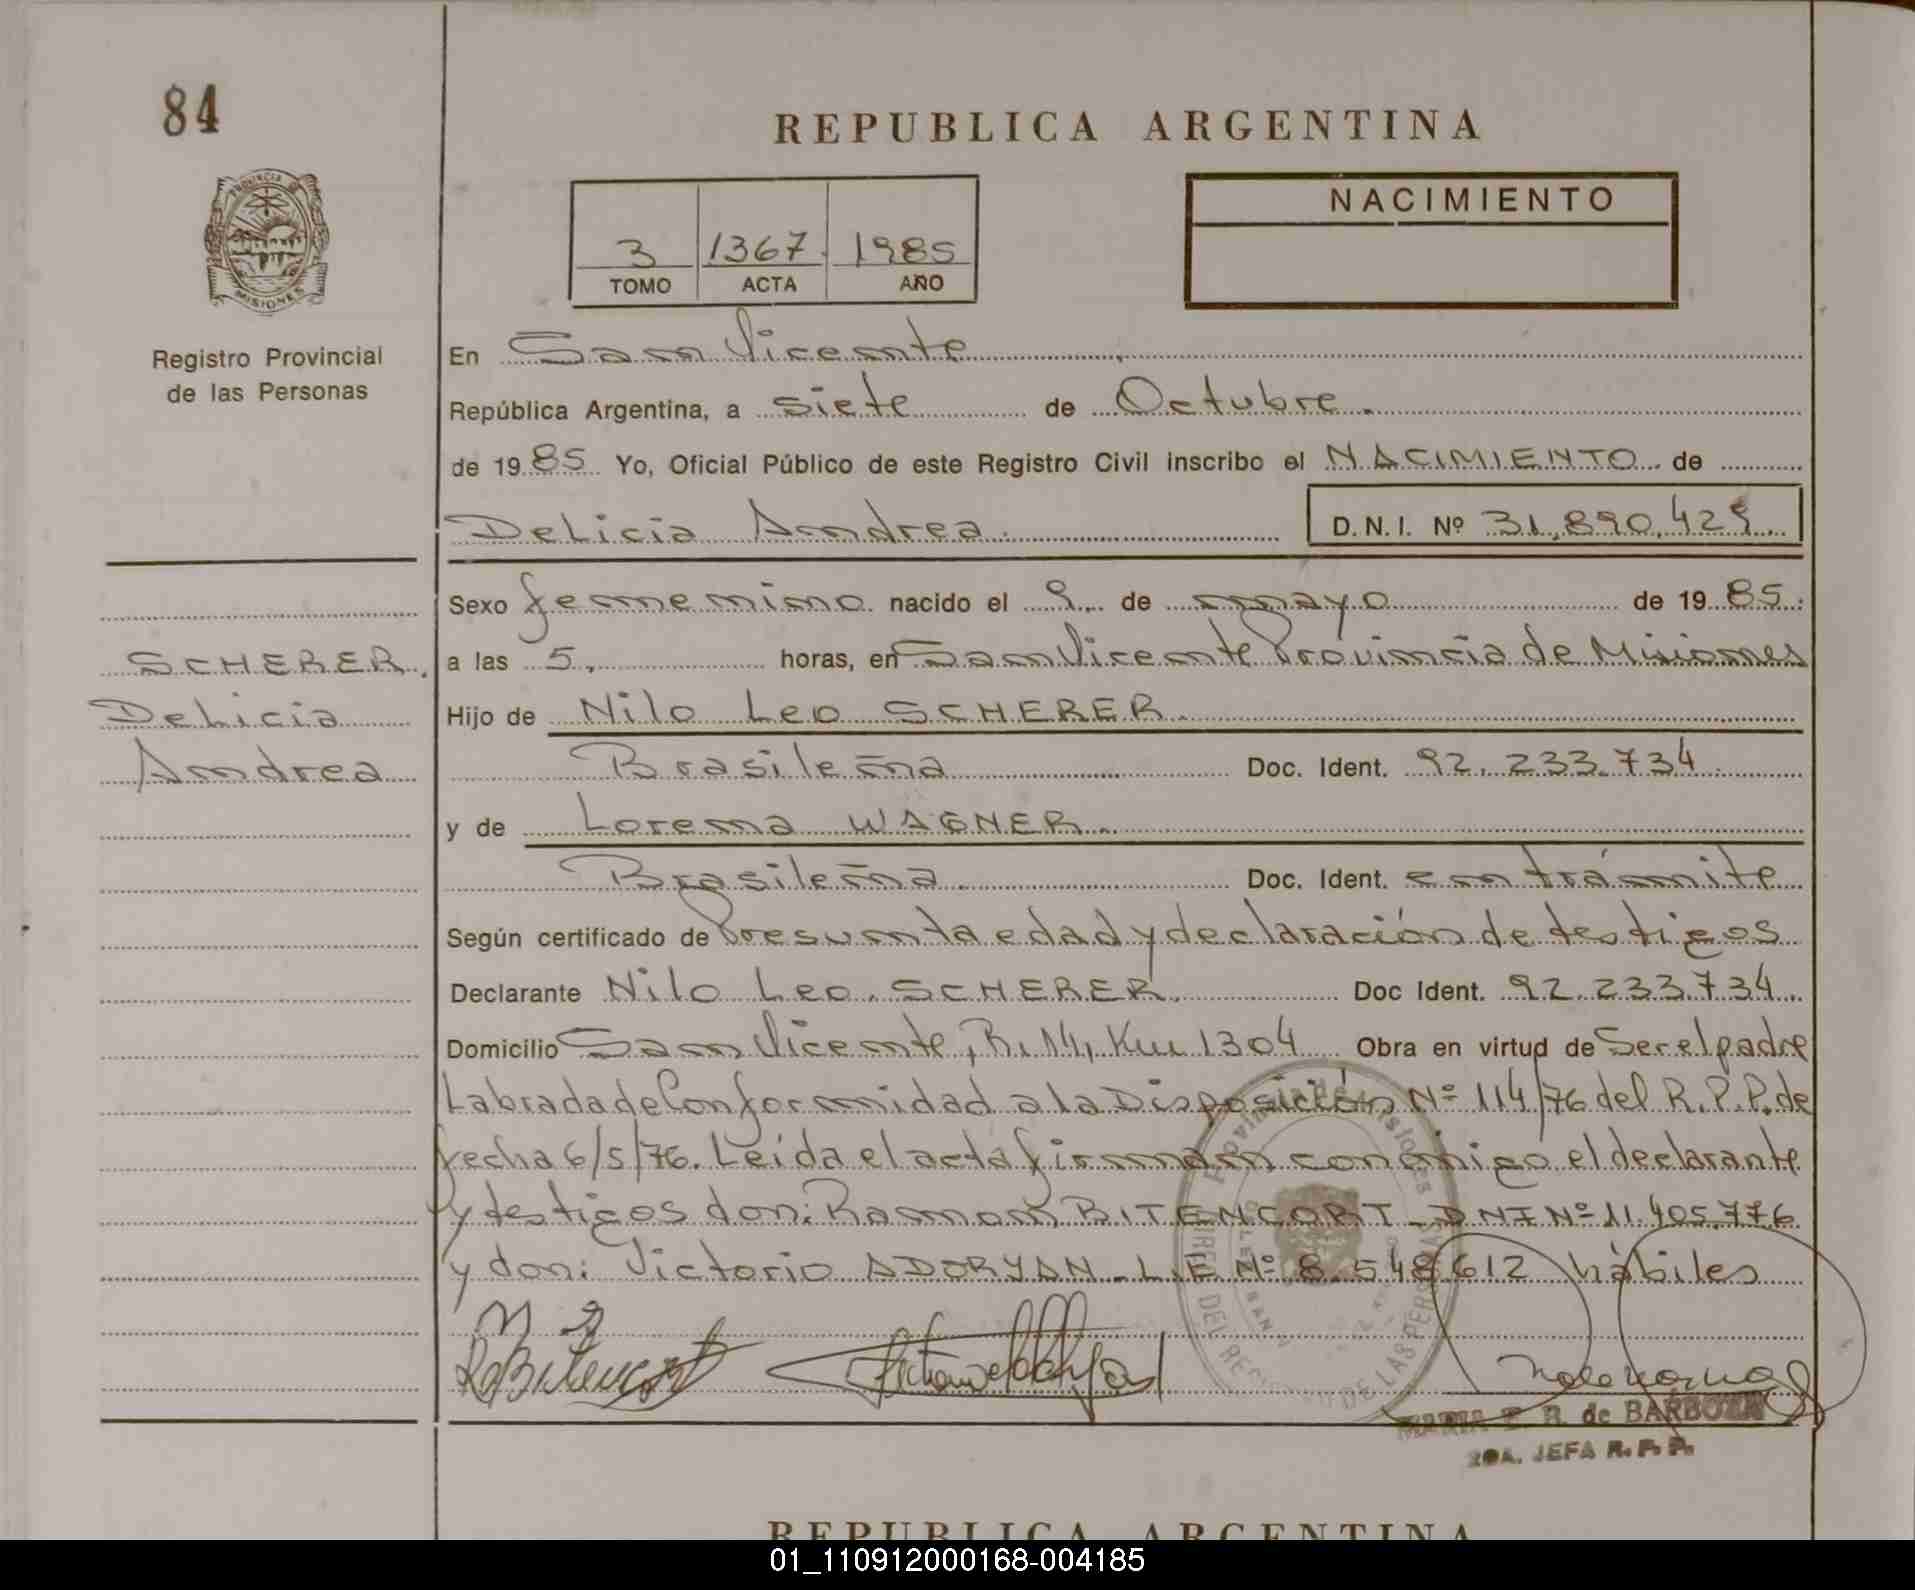 84
REPUBLICA ARGENTINA
PROVINCIA DE
MISIONES
Registro Provincial
de las Personas
3 1367 1985
TOMO ACTA AÑO
NACIMIENTO
En San Vicente
República Argentina, a siete de Octubre.
de 1985 Yo, Oficial Público de este Registro Civil inscribo el NACIMIENTO de
Delicia Andrea. D.N.I. Nº 31.890.429
SCHERER,
Delicia
Andrea
Sexo femenino nacido el 9 de mayo de 1985.
a las 5, horas, en San Vicente Provincia de Misiones
Hijo de Nilo Leo SCHERER.
Brasileña Doc. Ident. 92.233.734.
y de Lorena WAGNER.
Brasileña Doc. Ident. en trámite
Según certificado de Presunta edad y declaración de testigos
Declarante Nilo Leo SCHERER. Doc Ident. 92.233.734
Domicilio San Vicente, R. 14, Km 1304 Obra en virtud de Ser el padre
Labrada de Conformidad a la Disposición Nº 114/76 del R.P.P. de
fecha 6/5/76. Leída el acta firman conmigo el declarante
y testigos don: Ramon BITENCORT - DNI Nº 11.405.776
y don: Victorio ADORYAN - L.E Nº 8.548.612 hábiles
MARIA E. R. de BARBOZA
2DA. JEFA R. P. P.
REPUBLICA ARGENTINA
01_110912000168-004185